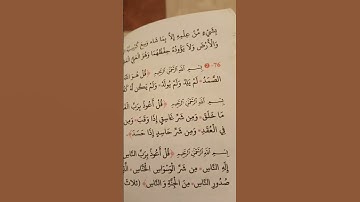 بِشَيْءٍ مِّنْ عِلْمِهِ إِلاَّ بِمَا شَاءَ وَسِعَ
وَالْأَرْضَ وَلاَ يَؤُودُهُ حِفْظُهُمَا وَهُوَ الْعَلِيُّ
76- بِسْمِ اللهِ الرَّحْمَنِ الرَّحِيمِ ﴿قُلْ هُوَ
الصَّمَدُ * لَمْ يَلِدْ وَلَمْ يُولَدْ * وَلَمْ يَكُن لَّهُ
بِسْمِ اللهِ الرَّحْمَنِ الرَّحِيمِ ﴿قُلْ أَعُوذُ بِرَبِّ
مَا خَلَقَ * وَمِن شَرِّ غَاسِقٍ إِذَا وَقَبَ * وَمِن شَرِّ
فِي الْعُقَدِ * وَمِن شَرِّ حَاسِدٍ إِذَا حَسَدَ﴾
بِسْمِ اللهِ الرَّحْمَنِ الرَّحِيمِ ﴿قُلْ أَعُوذُ بِرَبِّ النَّاسِ
إِلَهِ النَّاسِ * مِن شَرِّ الْوَسْوَاسِ الْخَنَّاسِ
صُدُورِ النَّاسِ * مِنَ الْجِنَّةِ وَ النَّاسِ﴾ (ثلاث